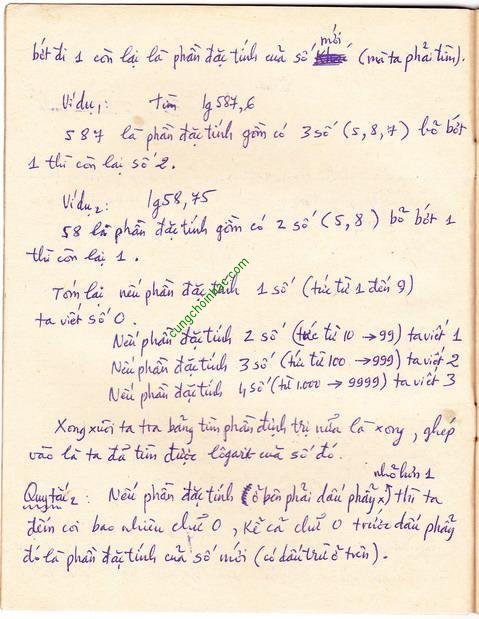 mới
bớt đi 1 còn lại là phần đặc tính của số (mà ta phải tìm).
Ví dụ 1: Tìm lg 587,6
587 là phần đặc tính gồm có 3 số (5,8,7) bỏ bớt
1 thì còn lại số 2.
Ví dụ 2: lg 58,75
58 là phần đặc tính gồm có 2 số (5,8) bỏ bớt 1
thì còn lại 1.
Tóm lại nếu phần đặc tính 1 số (tức từ 1 đến 9)
ta viết số 0.
cungchoinhac.com
Nếu phần đặc tính 2 số (tức từ 10 → 99) ta viết 1
Nếu phần đặc tính 3 số (tức từ 100 → 999) ta viết 2
Nếu phần đặc tính 4 số (từ 1.000 → 9999) ta viết 3
Xong xuôi ta tra bảng tìm phần định trị nữa là xong, ghép
vào là ta đã tìm được lôgart của số đó.
nhỏ hơn 1
Quy tắc 2: Nếu phần đặc tính (ở bên phải dấu phẩy) thì ta
đếm coi bao nhiêu chữ 0, kể cả chữ 0 trước dấu phẩy
đó là phần đặc tính của số mới (có dấu trừ ở trên).